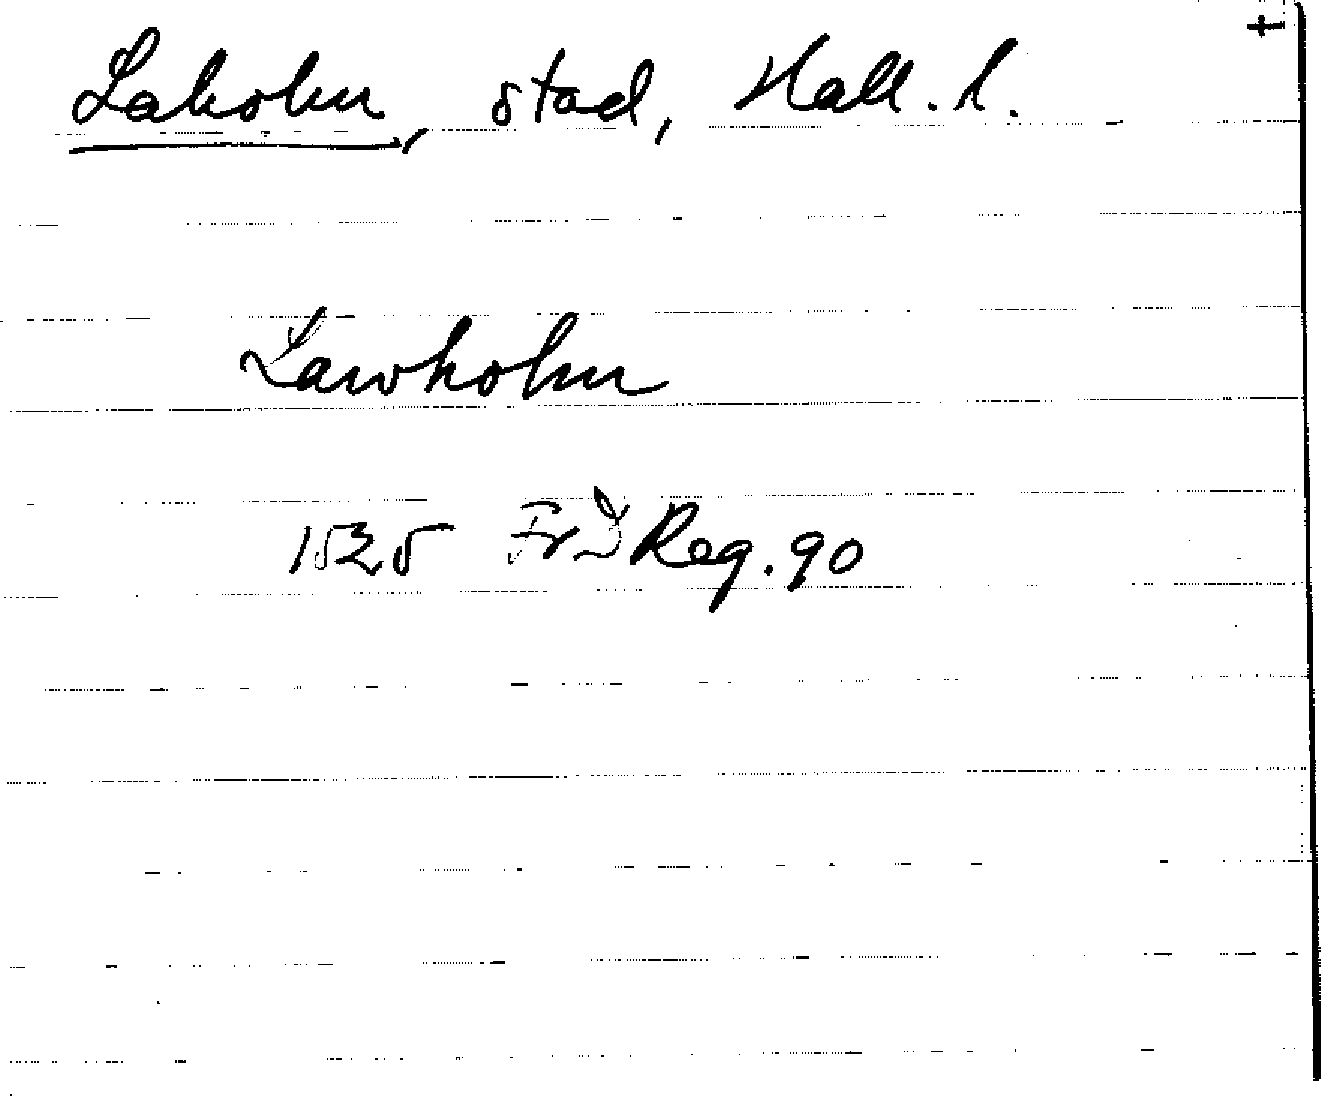 Laholm, stad, Hall. l.
Lawholm
1525 Fr I Reg. 90